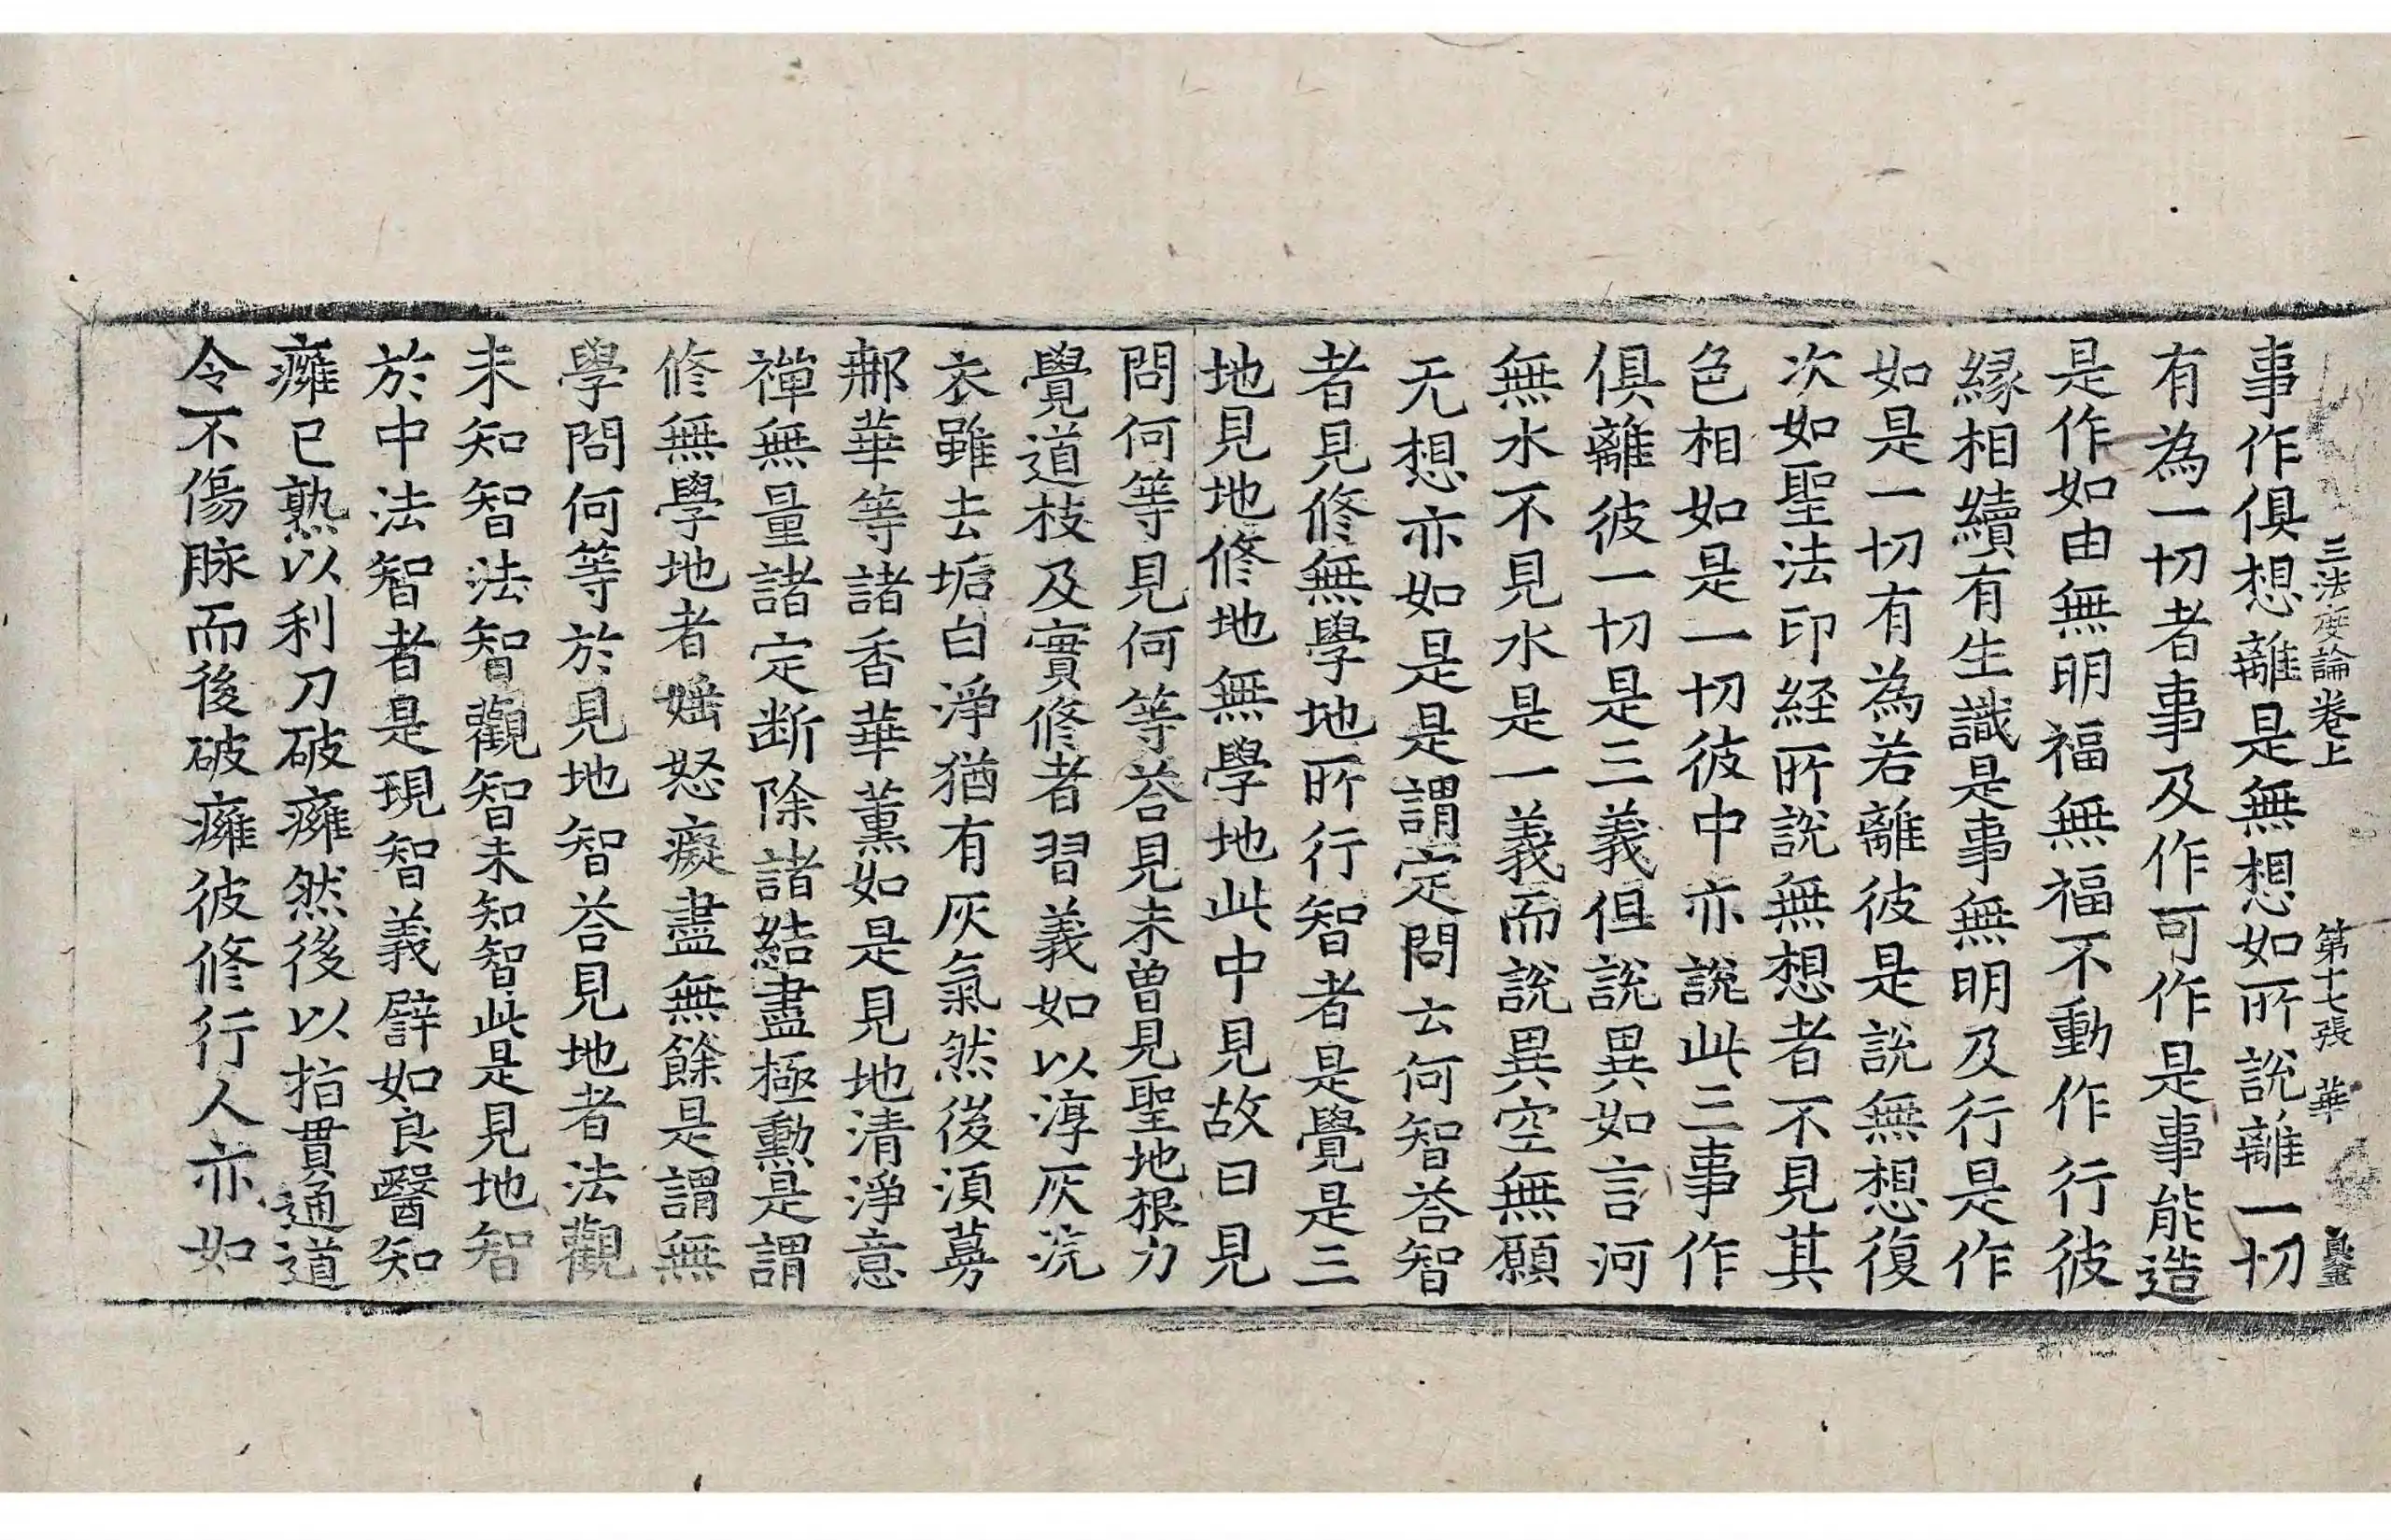 三法度論卷上 第十七張 華
事作俱想離是無想如所說離一切
有為一切者事及作可作是事能造
是作如由無明福無福不動作行彼
緣相續有生識是事無明及行是作
如是一切有為若離彼是說無想復
次如聖法印経所說無想者不見其
色相如是一切彼中亦說此三事作
俱離彼一切是三義但說異如言河
無水不見水是一義而說異空無願
无想亦如是是謂定問云何智荅智
者見修無學地所行智者是覺是三
地見地修地無學地此中見故曰見
問何等見何等荅見未曽見聖地根力
覺道枝及實修者習義如以淳灰浣
衣雖去垢白淨猶有灰氣然後湏蒡
郱華等諸香華薰如是見地清淨意
禪無量諸定断除諸結盡極勲是謂
修無學地者婬怒癡盡無餘是謂無
學問何等於見地智荅見地者法觀
未知智法智觀智未知智此是見地智
於中法智者是現智義譬如良醫知
癰已熟以利刀破癰然後以指貫通道
令不傷脉而後破癰彼修行人亦如